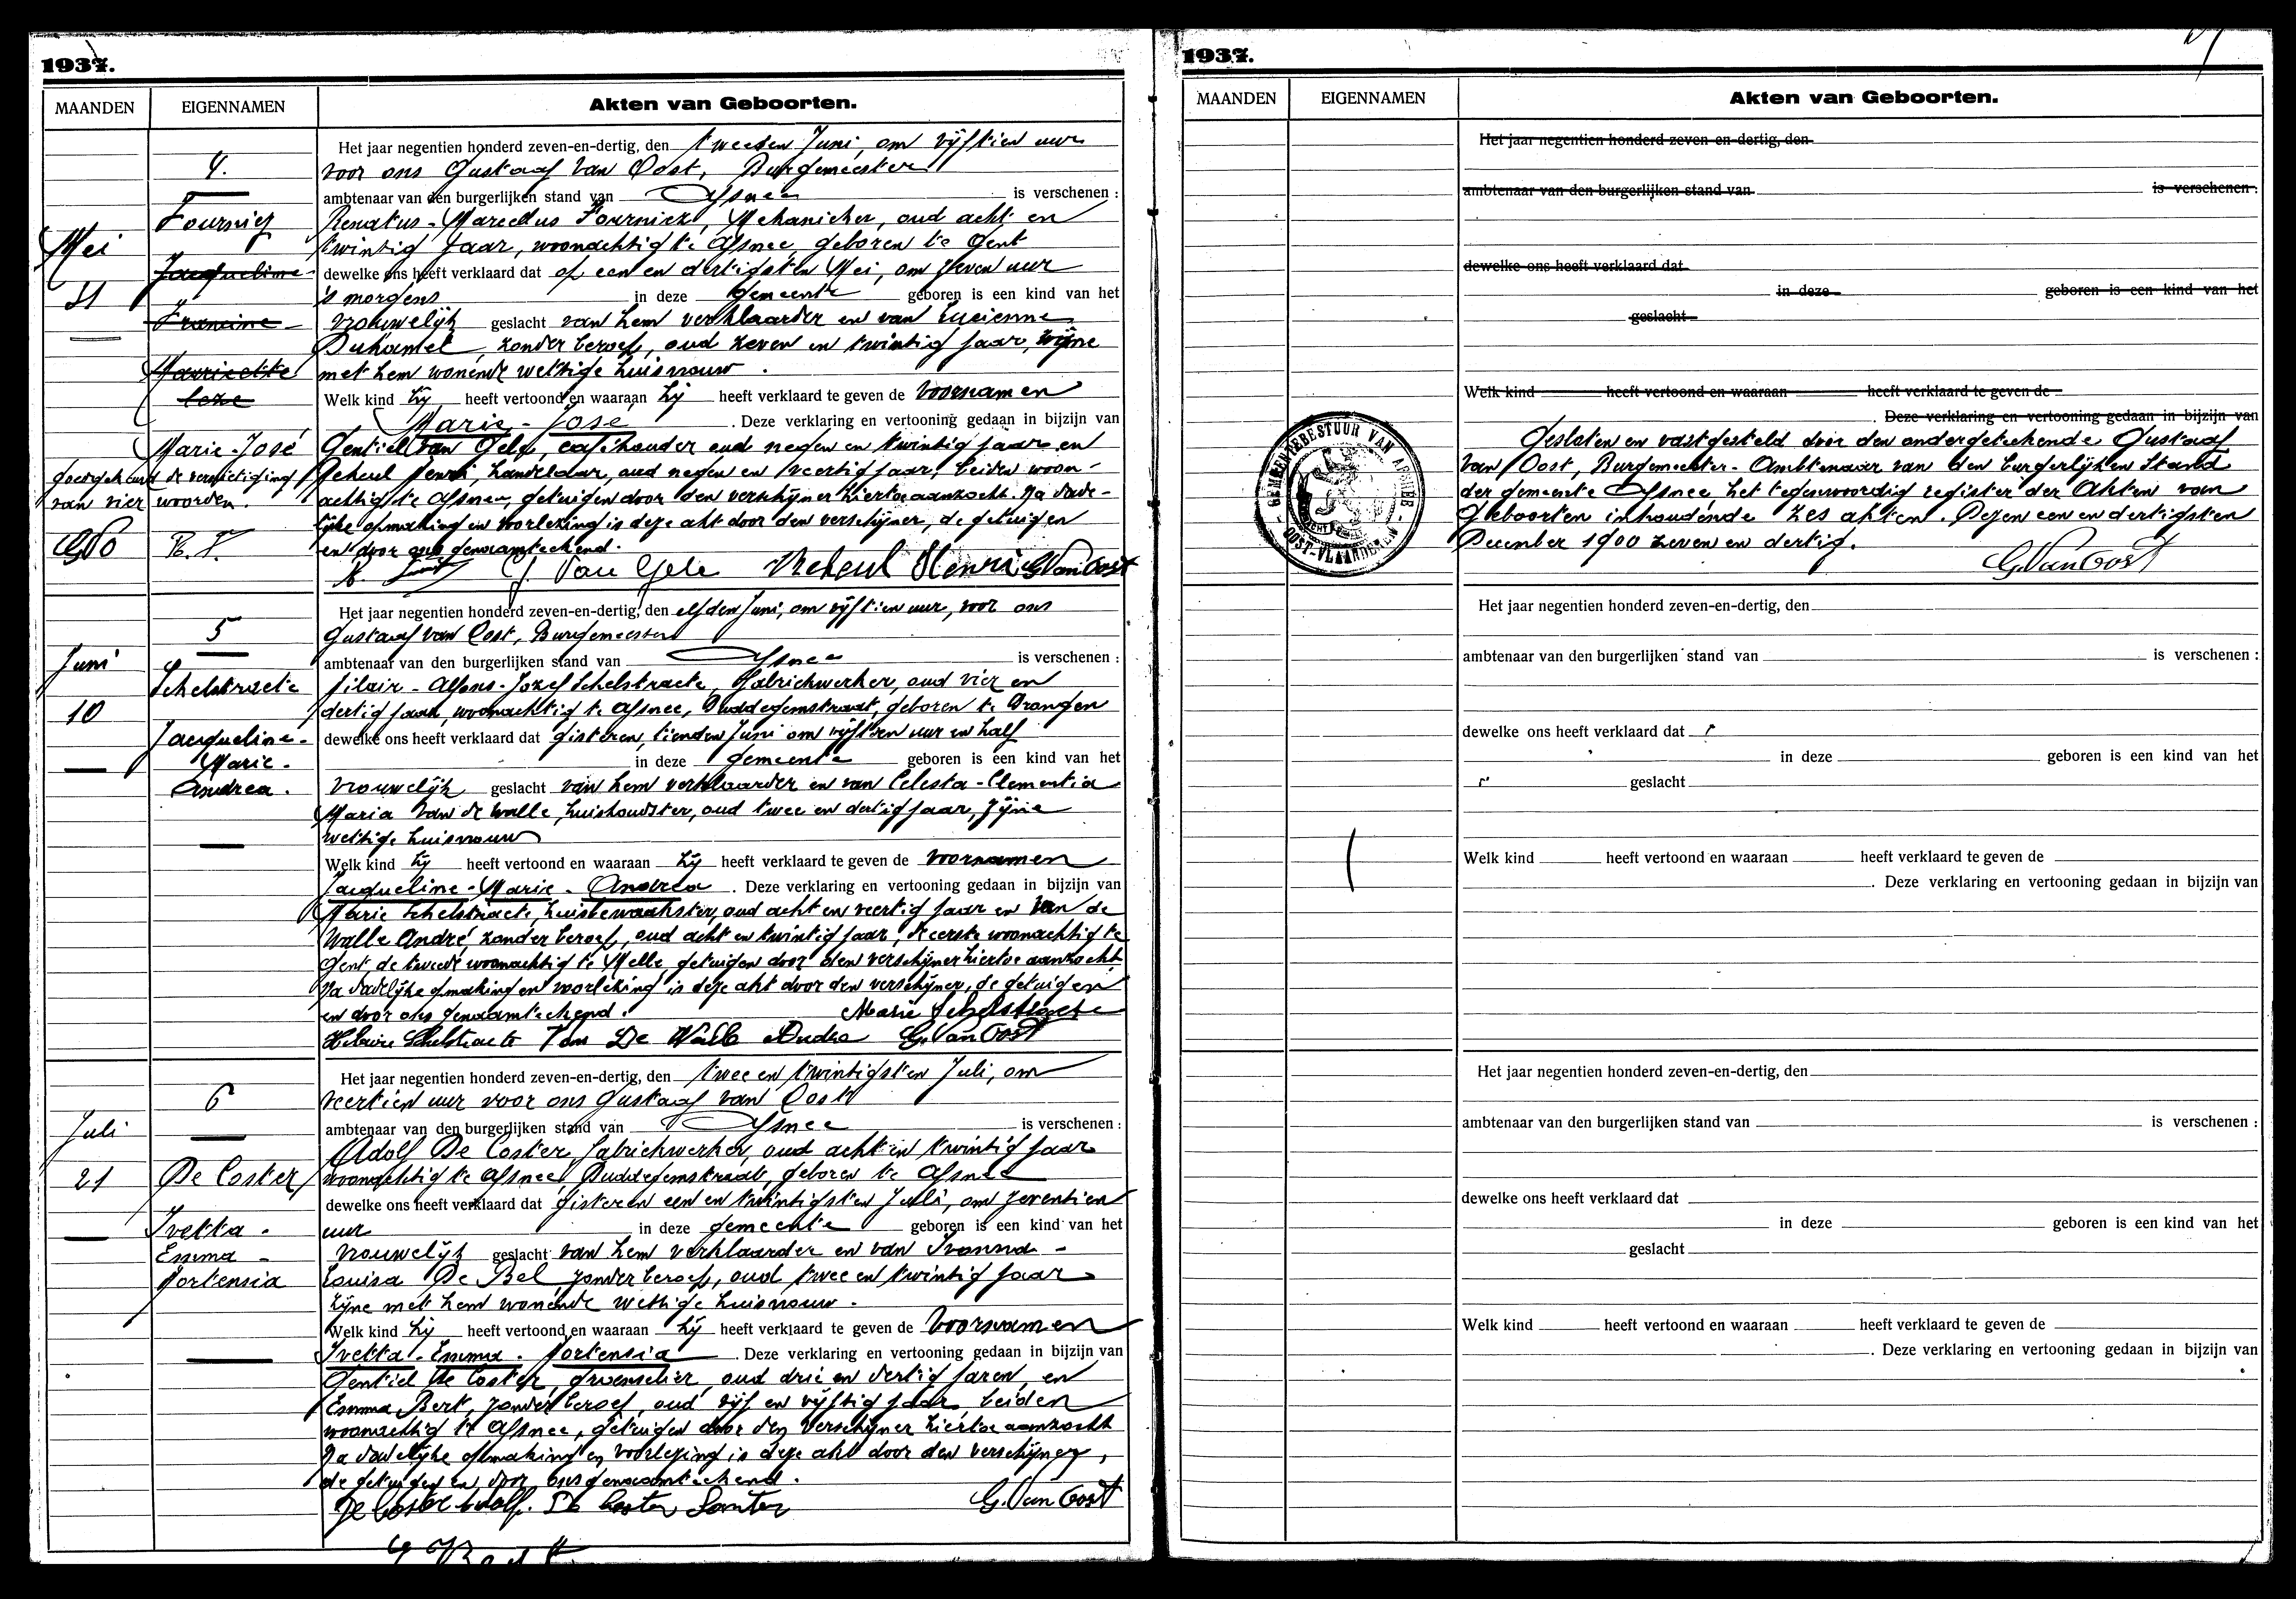 1937.
MAANDEN EIGENNAMEN Akten van Geboorten.
4.
Fournier
Mei
Jacqueline-
31
Francine-
Marie-José
Goedgekeurd de vernietiging
van vier woorden.
GVO R. F.
Het jaar negentien honderd zeven-en-dertig, den tweeden Juni, om vijftien uur
voor ons Gustaaf Van Oost, Burgemeester
ambtenaar van den burgerlijken stand van Afsnee is verschenen :
Renatus-Marcellus Fournier, Mekanieker, oud acht en
twintig jaar, woonachtig te Afsnee, geboren te Gent
dewelke ons heeft verklaard dat op een en dertigsten Mei, om zeven uur
's morgens in deze gemeente geboren is een kind van het
vrouwelijk geslacht van hem verklaarder en van Lucienne
Duhamel, zonder beroep, oud zeven en twintig jaar, zijne
met hem wonende wettige huisvrouw.
Welk kind hij heeft vertoond en waaraan hij heeft verklaard te geven de voornamen
Marie-José. Deze verklaring en vertooning gedaan in bijzijn van
Gentiel Van Gele, cafehouder oud negen en twintig jaar en
Henri, handelaar, oud negen en veertig jaar, beiden woon-
achtig te Afsnee, getuigen door den verschijner hiertoe aanzocht. Na dade-
lijke opmaking en voorlezing is deze akt door den verschijner, de getuigen
en door ons genaamteekend.
G. Van Gele Henri G. Van Oost
5
Juni
Schelstraete
10
Jacqueline-
Marie-
Andrea.
Het jaar negentien honderd zeven-en-dertig, den elfden Juni, om vijftien uur, voor ons
Gustaaf van Oost, Burgemeester
ambtenaar van den burgerlijken stand van Afsnee is verschenen :
Hilair-Alfons-Jozef Schelstraete, fabriekwerker, oud vier en
dertig jaar, woonachtig te Afsnee, Duddegemstraat, geboren te Drongen
dewelke ons heeft verklaard dat gisteren, tienden Juni om vijftien uur en half
in deze gemeente geboren is een kind van het
vrouwelijk geslacht van hem verklaarder en van Celesta-Clementia
Maria Van de Walle, huishoudster, oud twee en dertig jaar, zijne
wettige huisvrouw
Welk kind hij heeft vertoond en waaraan hij heeft verklaard te geven de voornamen
Jacqueline-Marie-Andrea. Deze verklaring en vertooning gedaan in bijzijn van
Marie Schelstraete, huisbewaakster, oud acht en veertig jaar en Van de
Walle André, zonder beroep, oud acht en twintig jaar, de eerste woonachtig te
Gent, de tweede woonachtig te Melle, getuigen door den verschijner hiertoe aanzocht
Na dadelijke opmaking en voorlezing is deze akt door den verschijner, de getuigen
en door ons genaamteekend. Marie Schelstraete
Hilaire Schelstraete Van De Walle Andre G. Van Oost
6
Juli
21 De Coster
Ivetta-
Emma-
Hortensia
Het jaar negentien honderd zeven-en-dertig, den twee en twintigsten Juli, om
veertien uur voor ons Gustaaf van Oost
ambtenaar van den burgerlijken stand van Afsnee is verschenen :
Adolf De Coster, fabriekwerker, oud acht en twintig jaar
woonachtig te Afsnee, Duddegemstraat, geboren te Afsnee
dewelke ons heeft verklaard dat gisteren een en twintigsten Juli, om zeventien
uur in deze gemeente geboren is een kind van het
vrouwelijk geslacht van hem verklaarder en van Ivonna-
Louisa De Bel, zonder beroep, oud twee en twintig jaar
zijne met hem wonende wettige huisvrouw.
Welk kind hij heeft vertoond en waaraan hij heeft verklaard te geven de voornamen
Ivetta-Emma-Hortensia. Deze verklaring en vertooning gedaan in bijzijn van
Gentiel De Coster, groenselier, oud drie en dertig jaren, en
Emma Bert, zonder beroep, oud vijf en vijftig jaar beiden
woonachtig te Afsnee, getuigen door den verschijner hiertoe aanzocht
Na dadelijke opmaking en voorlezing is deze akt door den verschijner,
de getuigen en door ons genaamteekend.
De Coster Adolf. De Coster G. Van Oost
1937.
MAANDEN EIGENNAMEN Akten van Geboorten.
Het jaar negentien honderd zeven-en-dertig, den
ambtenaar van den burgerlijken stand van is verschenen :
dewelke ons heeft verklaard dat
in deze geboren is een kind van het
geslacht
Welk kind heeft vertoond en waaraan heeft verklaard te geven de
. Deze verklaring en vertooning gedaan in bijzijn van
GEMEENTEBESTUUR VAN AFSNEE
OOST-VLAANDEREN
Gesloten en vastgesteld door den ondergeteekende Gustaaf
Van Oost, Burgemeester-Ambtenaar van den burgerlijken Stand
der gemeente Afsnee, het tegenwoordig register der Akten van
Geboorten inhoudende zes akten. Dezen een en dertigsten
December 1900 zeven en dertig.
G. Van Oost
Het jaar negentien honderd zeven-en-dertig, den
ambtenaar van den burgerlijken stand van is verschenen :
dewelke ons heeft verklaard dat
in deze geboren is een kind van het
geslacht
Welk kind heeft vertoond en waaraan heeft verklaard te geven de
. Deze verklaring en vertooning gedaan in bijzijn van
Het jaar negentien honderd zeven-en-dertig, den
ambtenaar van den burgerlijken stand van is verschenen :
dewelke ons heeft verklaard dat
in deze geboren is een kind van het
geslacht
Welk kind heeft vertoond en waaraan heeft verklaard te geven de
. Deze verklaring en vertooning gedaan in bijzijn van